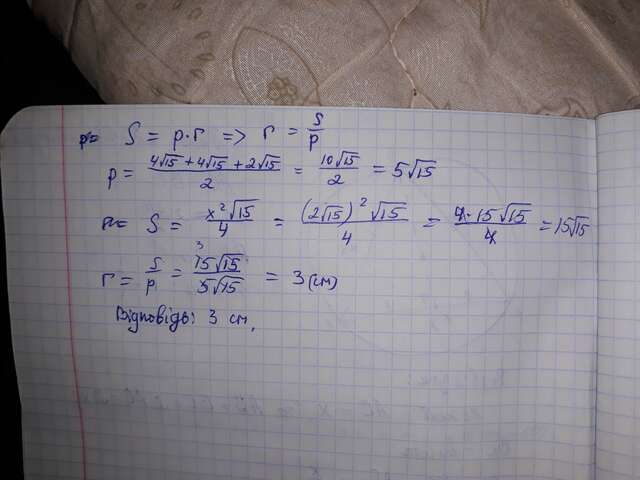 S = p·r => r = S/p
p = (4√15 + 4√15 + 2√15)/2 = 10√15/2 = 5√15
S = x²√15/4 = (2√15)²√15/4 = 4·15√15/4 = 15√15
r = S/p = 15√15/5√15 = 3 (см)
Відповідь: 3 см.